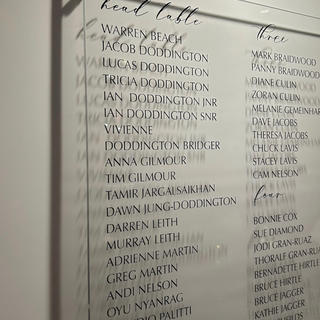 head table
WARREN BEACH
JACOB DODDINGTON
LUCAS DODDINGTON
TRICIA DODDINGTON
IAN DODDINGTON JNR
IAN DODDINGTON SNR
VIVIENNE
DODDINGTON BRIDGER
ANNA GILMOUR
TIM GILMOUR
TAMIR JARGALSAIKHAN
DAWN JUNG-DODDINGTON
DARREN LEITH
MURRAY LEITH
ADRIENNE MARTIN
GREG MARTIN
ANDI NELSON
OYU NYANRAG
PALITTI
three
MARK BRAIDWOOD
PANNY BRAIDWOOD
DIANE CULIN
ZORAN CULIN
MELANIE GEMEINHAR
DAVE JACOBS
THERESA JACOBS
CHUCK LAVIS
STACEY LAVIS
CAM NELSON
four
BONNIE COX
SUE DIAMOND
JODI GRAN-RUAZ
THORALF GRAN-RUA
BERNADETTE HIRTLE
BRUCE HIRTLE
BRUCE JAGGER
KATHIE JAGGER